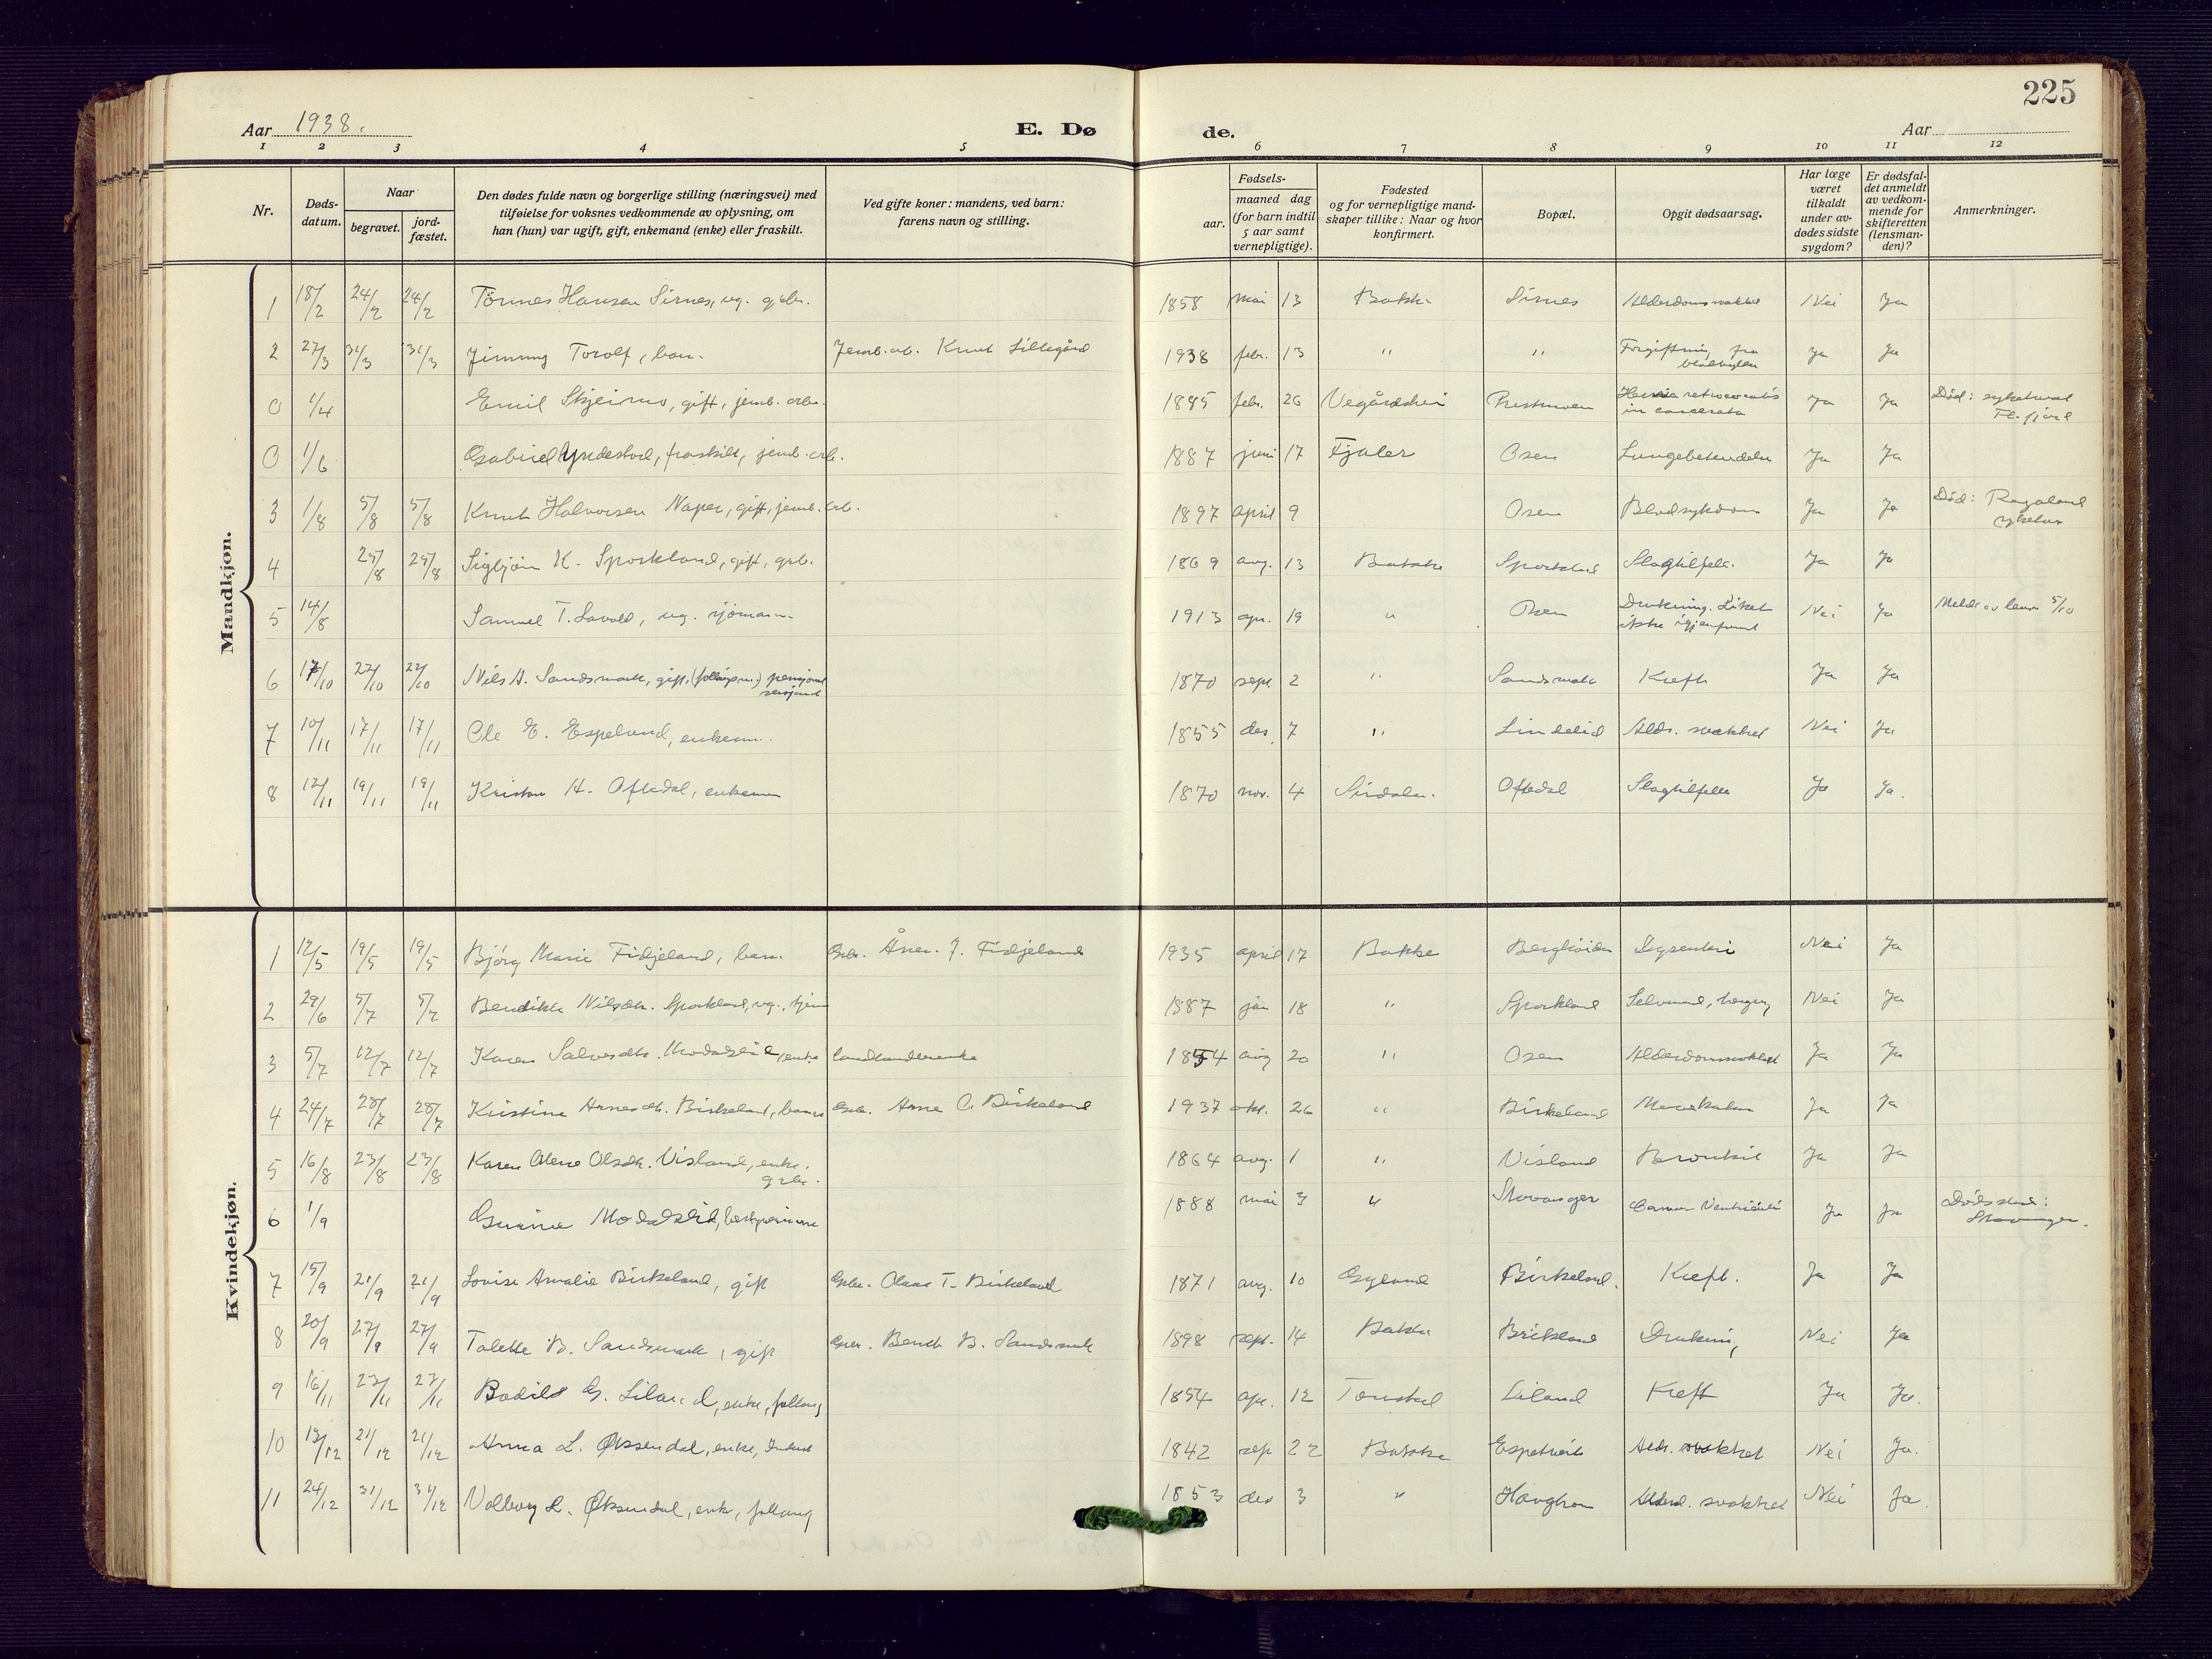 Aar 1938.
E. Dø
de.
225
Aar
1 2 3 4 5 6 7 8 9 10 11 12
Nr.
Døds-
datum.
Naar
begravet.
jord-
fæstet.
Den dødes fulde navn og borgerlige stilling (næringsvei) med
tilføielse for voksnes vedkommende av oplysning, om
han (hun) var ugift, gift, enkemand (enke) eller fraskilt.
Ved gifte koner: mandens, ved barn:
farens navn og stilling.
Fødsels-
aar.
maaned dag
(for barn indtil
5 aar samt
vernepligtige).
Fødested
og for vernepligtige mand-
skaper tillike: Naar og hvor
konfirmert.
Bopæl.
Opgit dødsaarsag.
Har læge
været
tilkaldt
under av-
dødes sidste
sygdom?
Er dødsfal-
det anmeldt
av vedkom-
mende for
skifteretten
(lensman-
den)?
Anmerkninger.
Mandkjøn.
1 18/2 24/2 24/2 Tönnes Hansen Sirnes, ug. gbr. 1858 mai 13 Bakke Sirnes Alderdomssvakhet Nei Ja
2 27/3 31/3 31/3 Jimmy Torolf, barn. Jernb.arb. Knut Lillegård 1938 febr. 13 " " Forgiftning fra Ja Ja
0 1/4 Emil Skjeimo, gift, jernb. arb. 1895 febr. 26 Vegårdshei Prestmoen Ja Ja Død: sykehuset
Fl.fjord
0 1/6 Gabriel Yndestad, fraskilt, jernb. arb. 1887 juni 17 Fjaler Osen Lungebetendelse Ja Ja
3 1/8 5/8 5/8 Knut Halvorsen Naper, gift, jernb. arb. 1897 april 9 Osen Blodsykdom Ja Ja Død: Rogaland
sykehus
4 25/8 25/8 Sigbjörn K. Sporkland, gift, grb. 1869 aug. 13 Bakke Sporkland Slagtilfelle. Ja Ja
5 14/8 Samuel T. Lavold, ug. sjömann. 1913 apr. 19 " Osen Drukning. Liket
ikke igjenfunnet Nei Ja Meldt av lensm 5/10
6 17/10 22/10 22/10 Nils A. Sandsmark, gift, pensjonert
sersjant 1870 sept. 2 " Sandsmark Kreft Ja Ja
7 10/11 17/11 17/11 Ole E. Espeland, enkem. 1855 des. 7 " Lindelid Alds. svakhet Nei Ja
8 12/11 19/11 19/11 H. Oftedal, enkem 1870 nov. 4 Sirdalen. Oftedal Slagtilfelle Ja Ja.
Kvindekjøn.
1 12/5 19/5 19/5 Björg Marie Fidjeland, barn Gbr. J. Fidjeland 1935 april 17 Bakke Nei Ja
2 29/6 5/7 5/7 Bendikte Nilsdtr. Sporkland, ug., tjen 1887 jan 18 " Sporkland Selvmord, Nei Ja
3 5/7 12/7 12/7 Karen Salvesdtr. Modalslid, enke landhandlerenke 1854 aug 20 " Osen Alderdomssvakhet Ja Ja
4 24/7 28/7 28/7 Kristine Arnesdtr. Birkeland, barn Gbr. Arne C. Birkeland 1937 okt. 26 " Birkeland Ja Ja
5 16/8 23/8 23/8 Karen Olene Olsdtr. Visland, enke.
gbr. 1864 aug. 1 " Visland Bronkit Ja Ja
6 1/9 Gurine Modalslid, 1888 mai 3 " Stavanger Cancer Ventriculi Ja Ja Dödssted:
Stavanger.
7 15/9 21/9 21/9 Lovise Amalie Birkeland, gift Gbr. Olaus T. Birkeland 1871 aug. 10 Gyland Birkeland. Kreft. Ja Ja
8 20/9 27/9 27/9 Tolette B. Sandsmark, gift Gbr. Bendt B. Sandsmark 1898 sept. 14 Bakke Birkeland Drukning Nei Ja
9 16/11 23/11 23/11 Bodild G. Liland, enke, følkong 1854 apr. 12 Tonstad Liland Kreft Ja Ja.
10 13/12 21/12 21/12 Anna L. Øksendal, enke, 1842 sep 22 Bakke Alds. svakhet Nei Ja.
11 24/12 31/12 31/12 Valborg L. Øksendal, enke, 1853 des 3 " Haughom Alderd. svakhet Nei Ja.